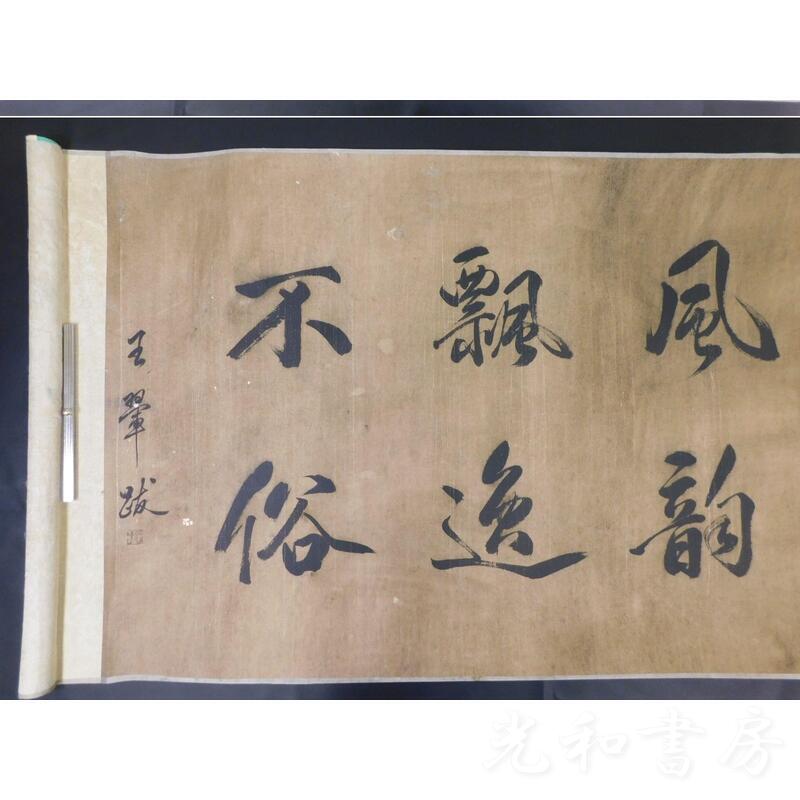 風韵
飄逸
不俗
王翬跋
光和書房